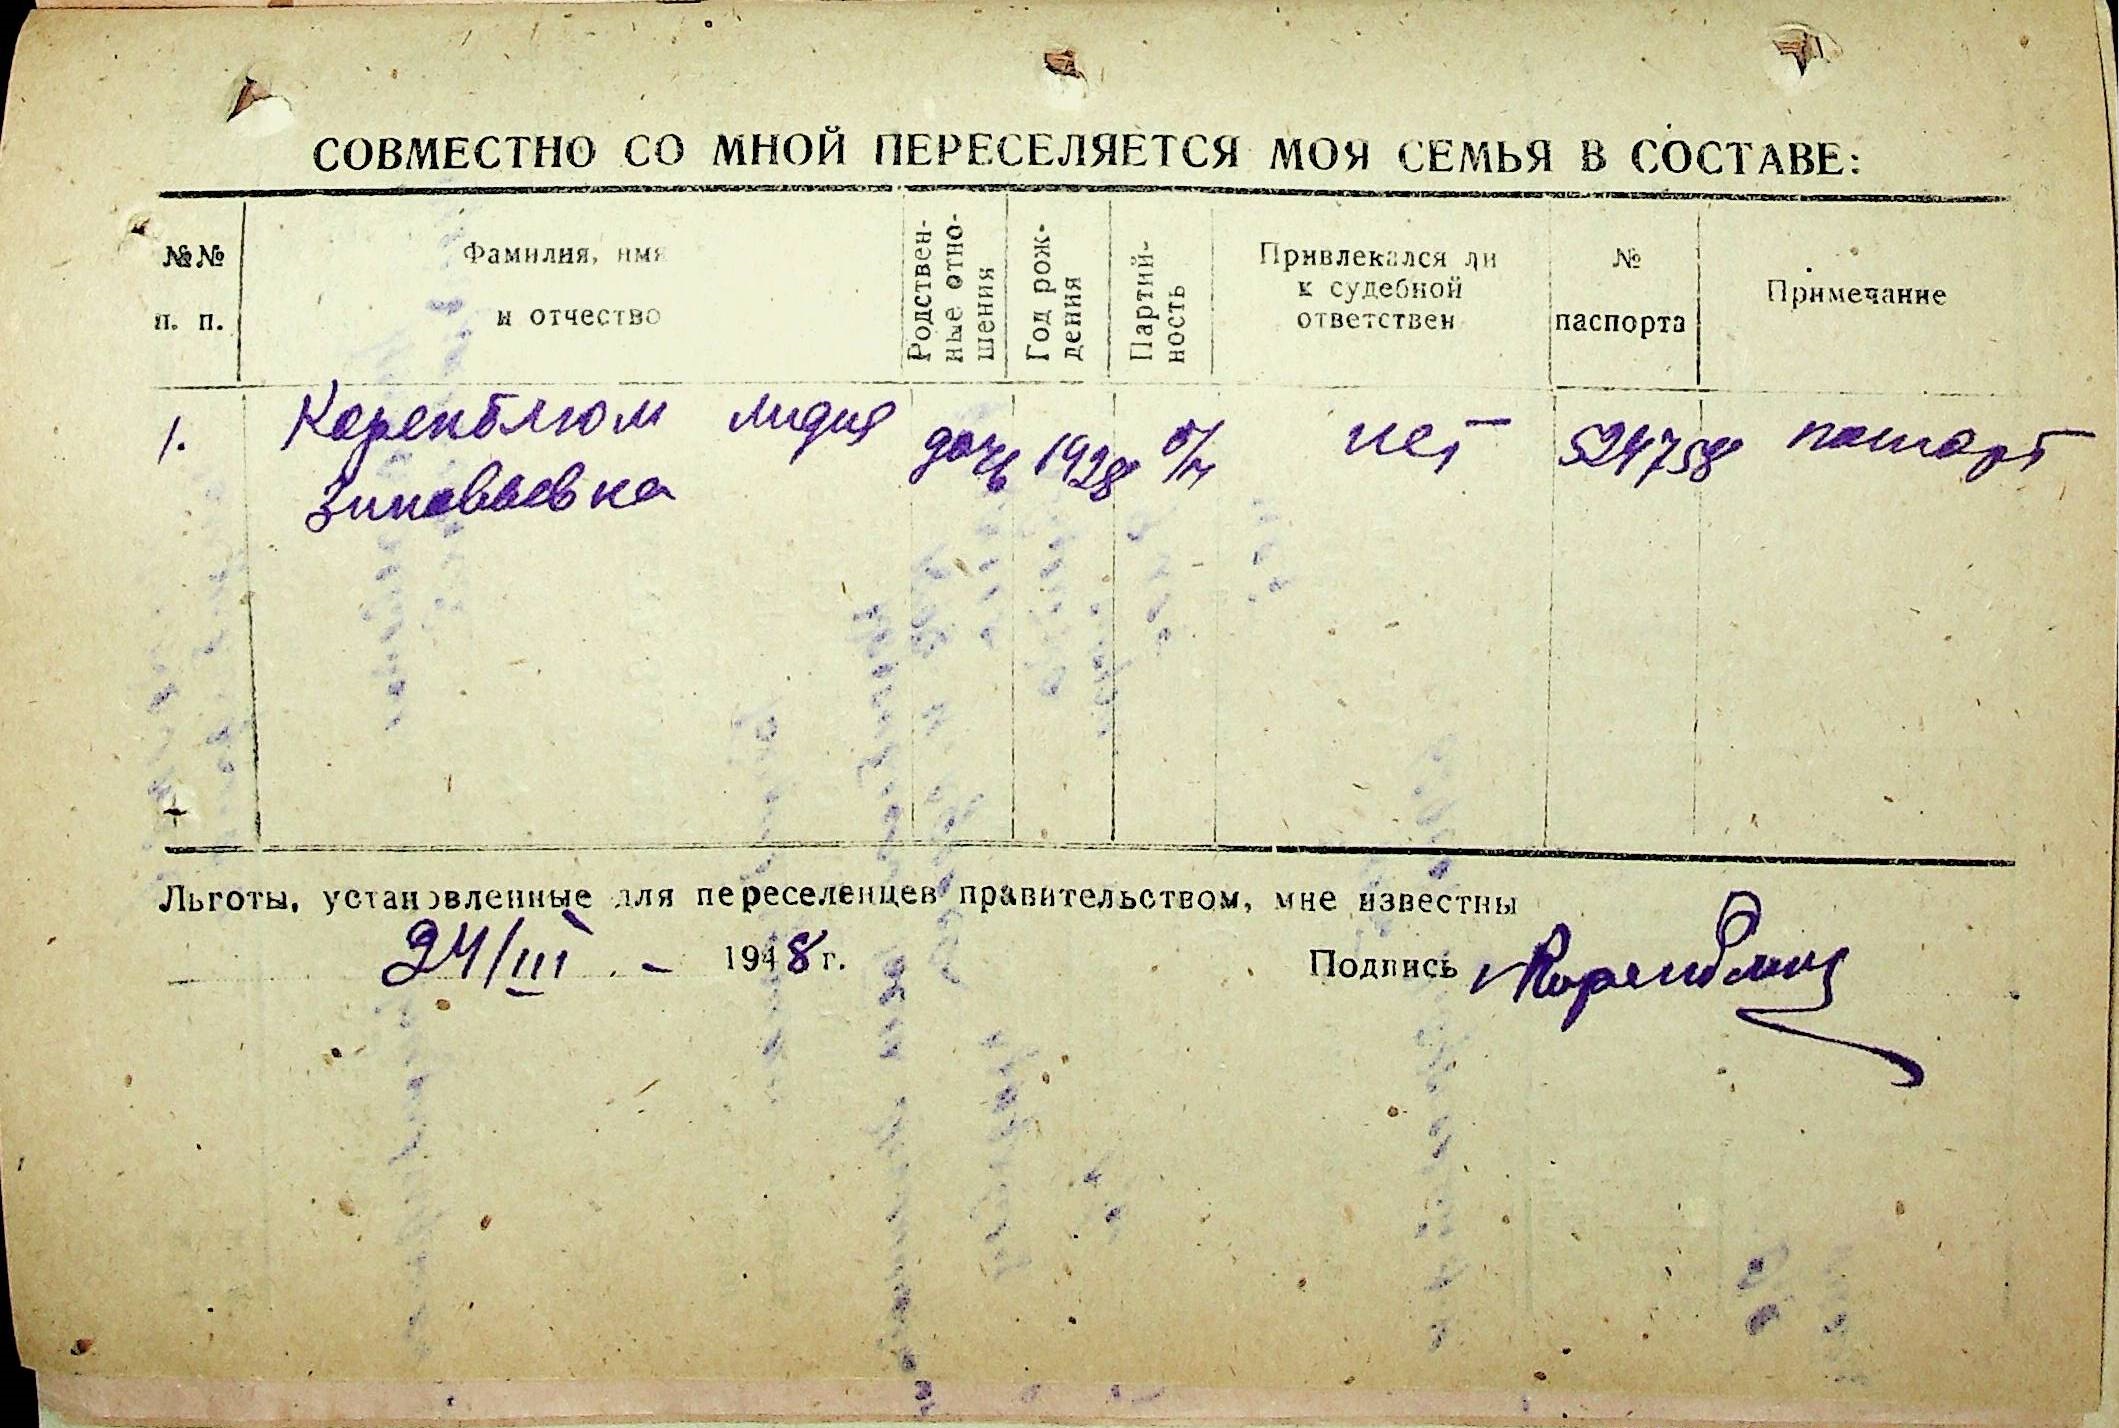 СОВМЕСТНО СО МНОЙ ПЕРЕСЕЛЯЕТСЯ МОЯ СЕМЬЯ В СОСТАВЕ:
№№ п. п.
Фамилия, имя и отчество
Родствен-
ные отно-
шения
Год рож-
дения
Партий-
ность
Привлекался ли
к судебной
ответствен
№
паспорта
Примечание
1. Коренблюм Лидия дочь 1928 б/п нет 524758 паспорт
Зиновьевна
Льготы, установленные для переселенцев правительством, мне известны
24/III - 1948 г. Подпись Коренблюм